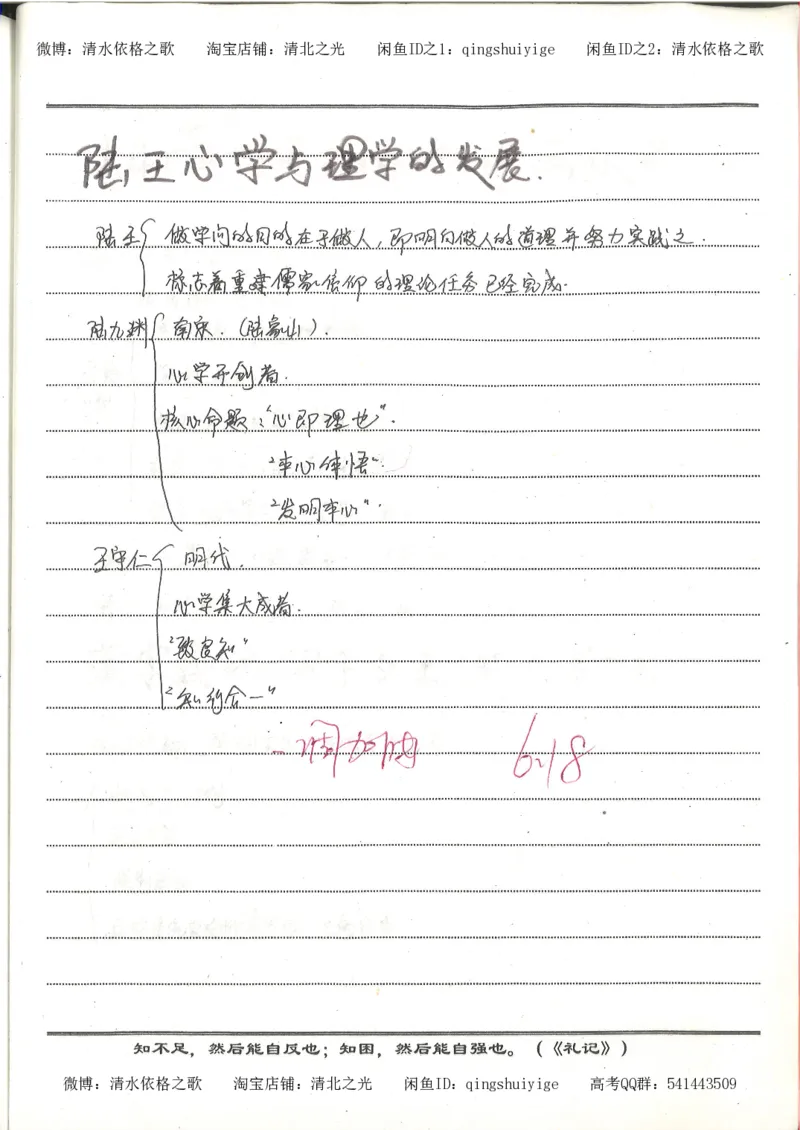 微博：清水依格之歌 淘宝店铺：清北之光 闲鱼ID之1：qingshuiyige 闲鱼ID之2：清水依格之歌
陆王心学与理学的发展.
陆王 做学问的目的在于做人，即明白做人的道理并努力实践之.
标志着重建儒家信仰的理论任务已经完成.
陆九渊 南宋.（陆象山）.
心学开创者.
核心命题："心即理也".
"本心体悟".
"发明本心".
王守仁 明代.
心学集大成者.
"致良知"
"知行合一"
6.18
知不足，然后能自反也；知困，然后能自强也。（《礼记》）
微博：清水依格之歌 淘宝店铺：清北之光 闲鱼ID：qingshuiyige 高考QQ群：541443509